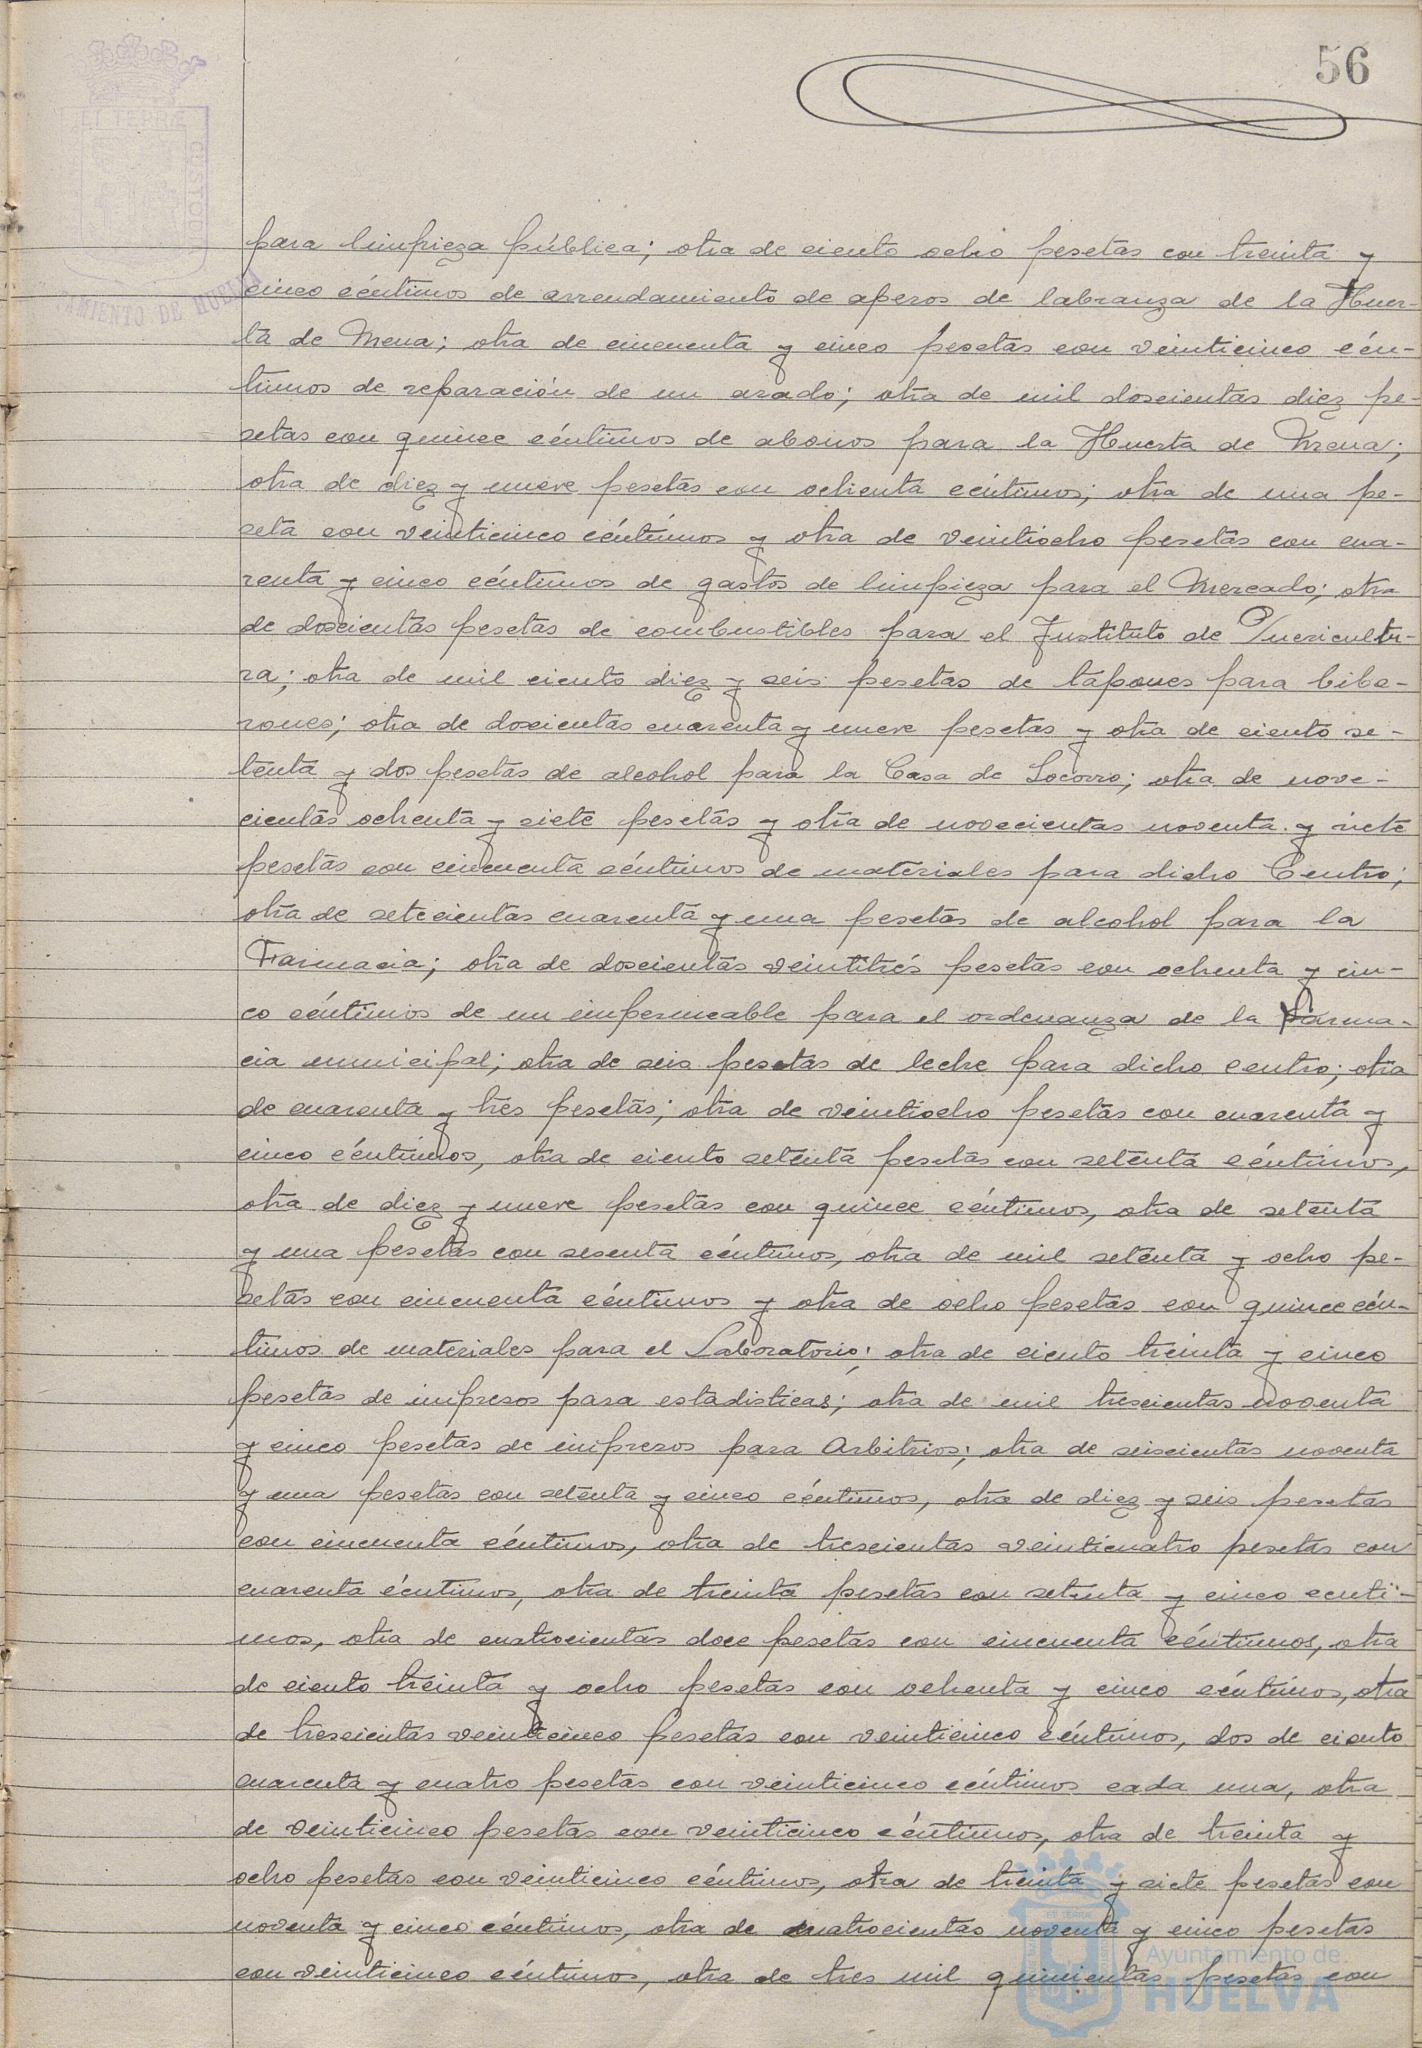 56
ET TERRÆ
CUSTOD
AMIENTO DE HUELVA
para limpieza pública; otra de ciento ocho pesetas con treinta y
cinco céntimos de arrendamiento de aperos de labranza de la Huer-
ta de Mena; otra de cincuenta y cinco pesetas con veinticinco cén-
timos de reparación de un arado; otra de mil doscientas diez pe-
setas con quince céntimos de abonos para la Huerta de Mena;
otra de diez y nueve pesetas con ochenta céntimos; otra de una pe-
seta con veinticinco céntimos y otra de veintiocho pesetas con cua-
renta y cinco céntimos de gastos de limpieza para el Mercado; otra
de doscientas pesetas de combustibles para el Instituto de Puericultu-
ra; otra de mil ciento diez y seis pesetas de tapones para bibe-
rones; otra de doscientas cuarenta y nueve pesetas y otra de ciento se-
tenta y dos pesetas de alcohol para la Casa de Socorro; otra de nove-
cientas ochenta y siete pesetas y otra de novecientas noventa y siete
pesetas con cincuenta céntimos de materiales para dicho Centro;
otra de setecientas cuarenta y una pesetas de alcohol para la
Farmacia; otra de doscientas veintitrés pesetas con ochenta y cin-
co céntimos de un impermeable para el ordenanza de la Farma-
cia municipal; otra de seis pesetas de leche para dicho centro; otra
de cuarenta y tres pesetas; otra de veintiocho pesetas con cuarenta y
cinco céntimos, otra de ciento setenta pesetas con setenta céntimos,
otra de diez y nueve pesetas con quince céntimos, otra de setenta
y una pesetas con sesenta céntimos, otra de mil setenta y ocho pe-
setas con cincuenta céntimos y otra de ocho pesetas con quince cén-
timos de materiales para el Laboratorio; otra de ciento treinta y cinco
pesetas de impresos para estadisticas; otra de mil trescientas noventa
y cinco pesetas de impresos para Arbitrios; otra de seiscientas noventa
y una pesetas con setenta y cinco céntimos, otra de diez y seis pesetas
con cincuenta céntimos, otra de trescientas veinticuatro pesetas con
cuarenta céntimos, otra de treinta pesetas con setenta y cinco centi-
mos, otra de cuatrocientas doce pesetas con cincuenta céntimos, otra
de ciento treinta y ocho pesetas con ochenta y cinco céntimos, otra
de trescientas veinticinco pesetas con veinticinco céntimos, dos de ciento
cuarenta y cuatro pesetas con veinticinco céntimos cada una, otra
de veinticinco pesetas con veinticinco céntimos, otra de treinta y
ocho pesetas con veinticinco céntimos, otra de treinta y siete pesetas con
noventa y cinco céntimos, otra de cuatrocientas noventa y cinco pesetas
con veinticinco céntimos, otra de tres mil quinientas pesetas con
Ayuntamiento de
HUELVA